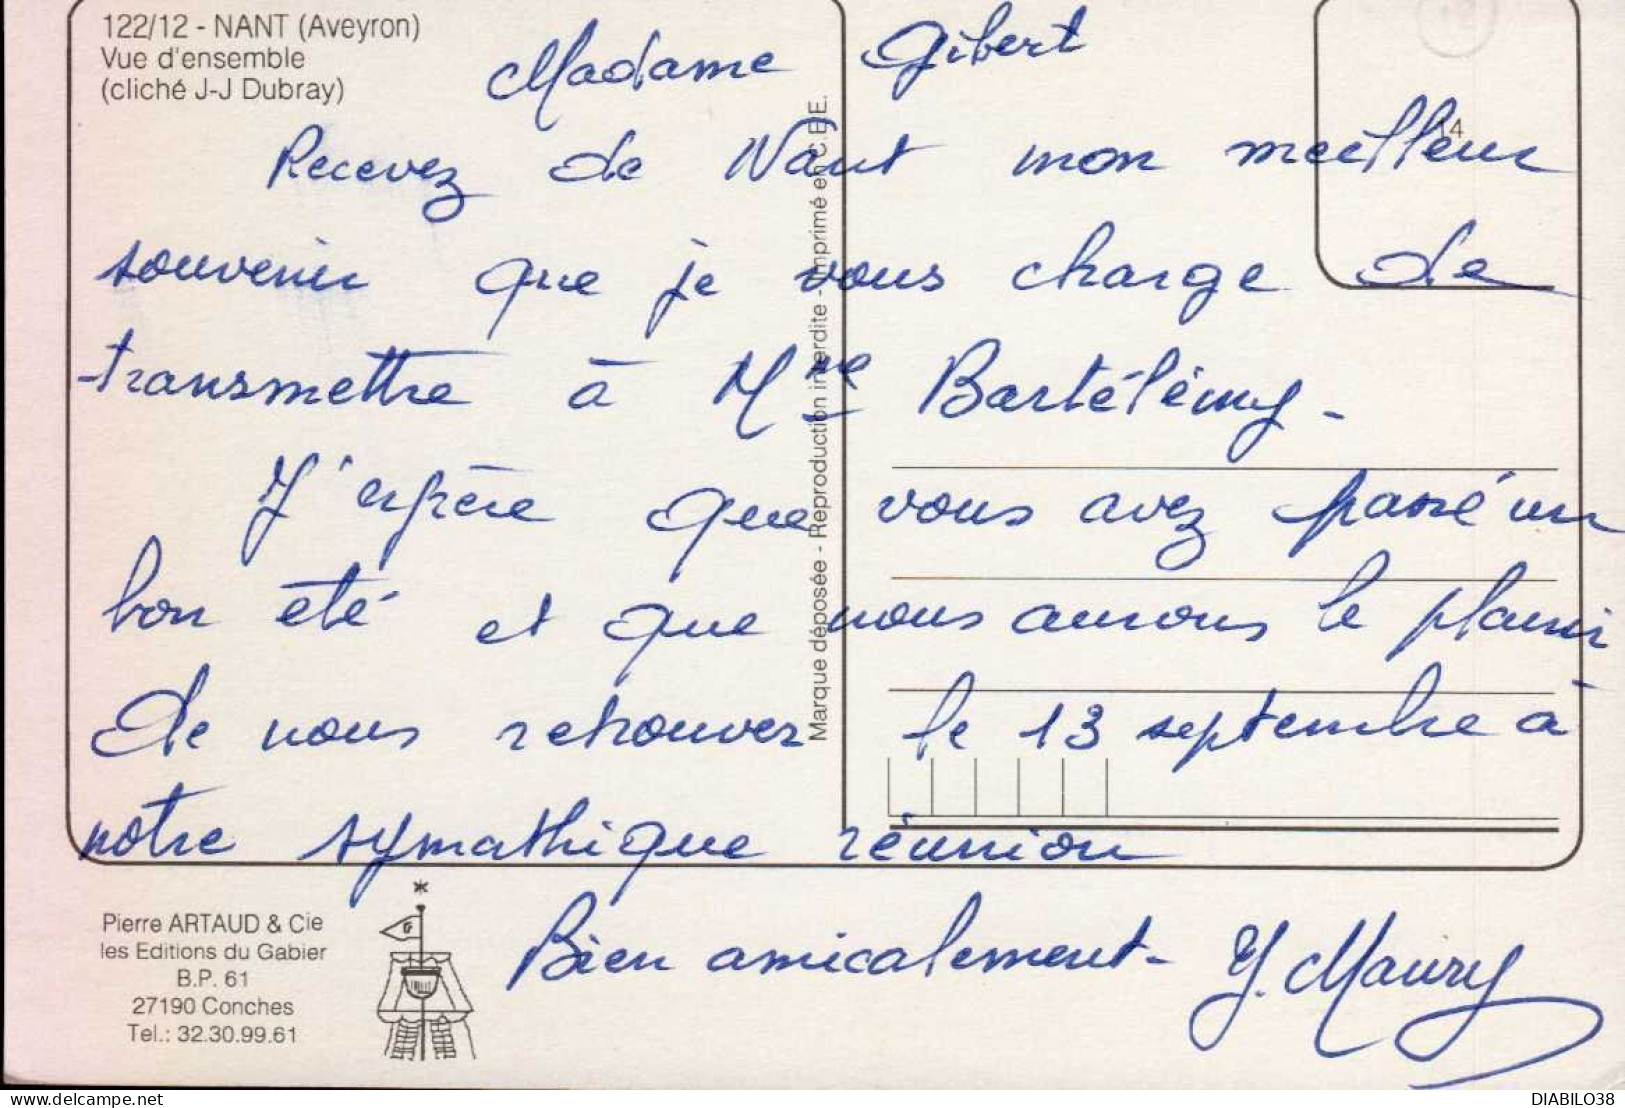 122/12 - NANT (Aveyron)
Vue d'ensemble
(cliché J-J Dubray)
Madame Gibert
Recevez de Nant mon meilleur
souvenir que je vous charge de
transmettre à Mme Bartélémy -
J'espère que vous avez passé un
bon été et que nous aurons le plaisir
de nous retrouver le 13 septembre à
notre symathique réunion
Bien amicalement - Y. Maury
Marque déposée - Reproduction interdite - Imprimé en C.E.E.
14
Pierre ARTAUD & Cie
les Editions du Gabier
B.P. 61
27190 Conches
Tel.: 32.30.99.61
delcampe.net
DIABILO38